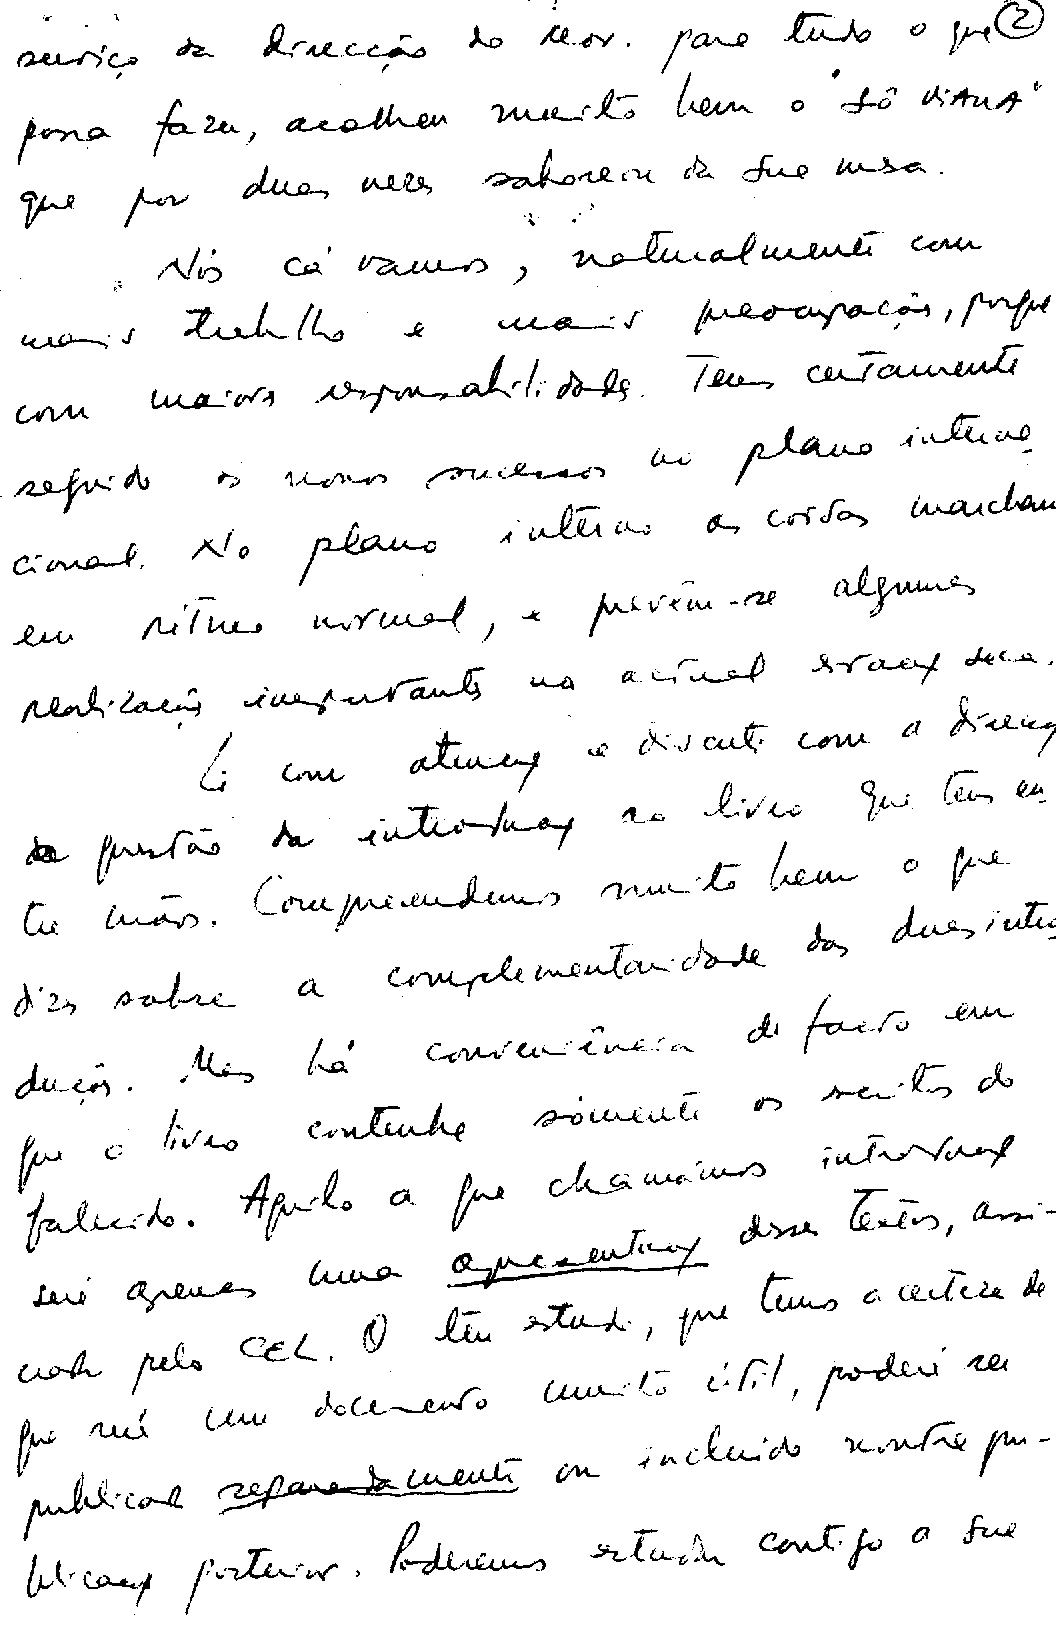 serviço da direcção do mov. para tudo o que ②
possa fazer, acolheu muito bem o "Sô VIANA"
que por duas vezes saboreou da sua mesa.
Nós cá vamos, naturalmente com
mais trabalho e mais preocupações, porque
com maiores responsabilidades. Tens certamente
seguido os nossos sucessos no plano interna-
cional. No plano interno as coisas marcham
em ritmo normal, e prevêm-se algumas
realizações importantes na actual estação seca.
Li com atenção e discuti com a direcção
a questão da introdução ao livro que tens en-
tre mãos. Compreendemos muito bem o que
dizes sobre a complementaridade das duas intro-
duções. Mas há conveniência de facto em
que o livro contenha sòmente os escritos do
falecido. Aquilo a que chamámos introdução
será apenas uma apresentação desses textos, assi-
nada pelo CEL. O teu estudo, que temos a certeza de
que será um documento muito útil, poderá ser
publicado separadamente ou incluido noutra pu-
blicação posterior. Poderemos estudar contigo a sua